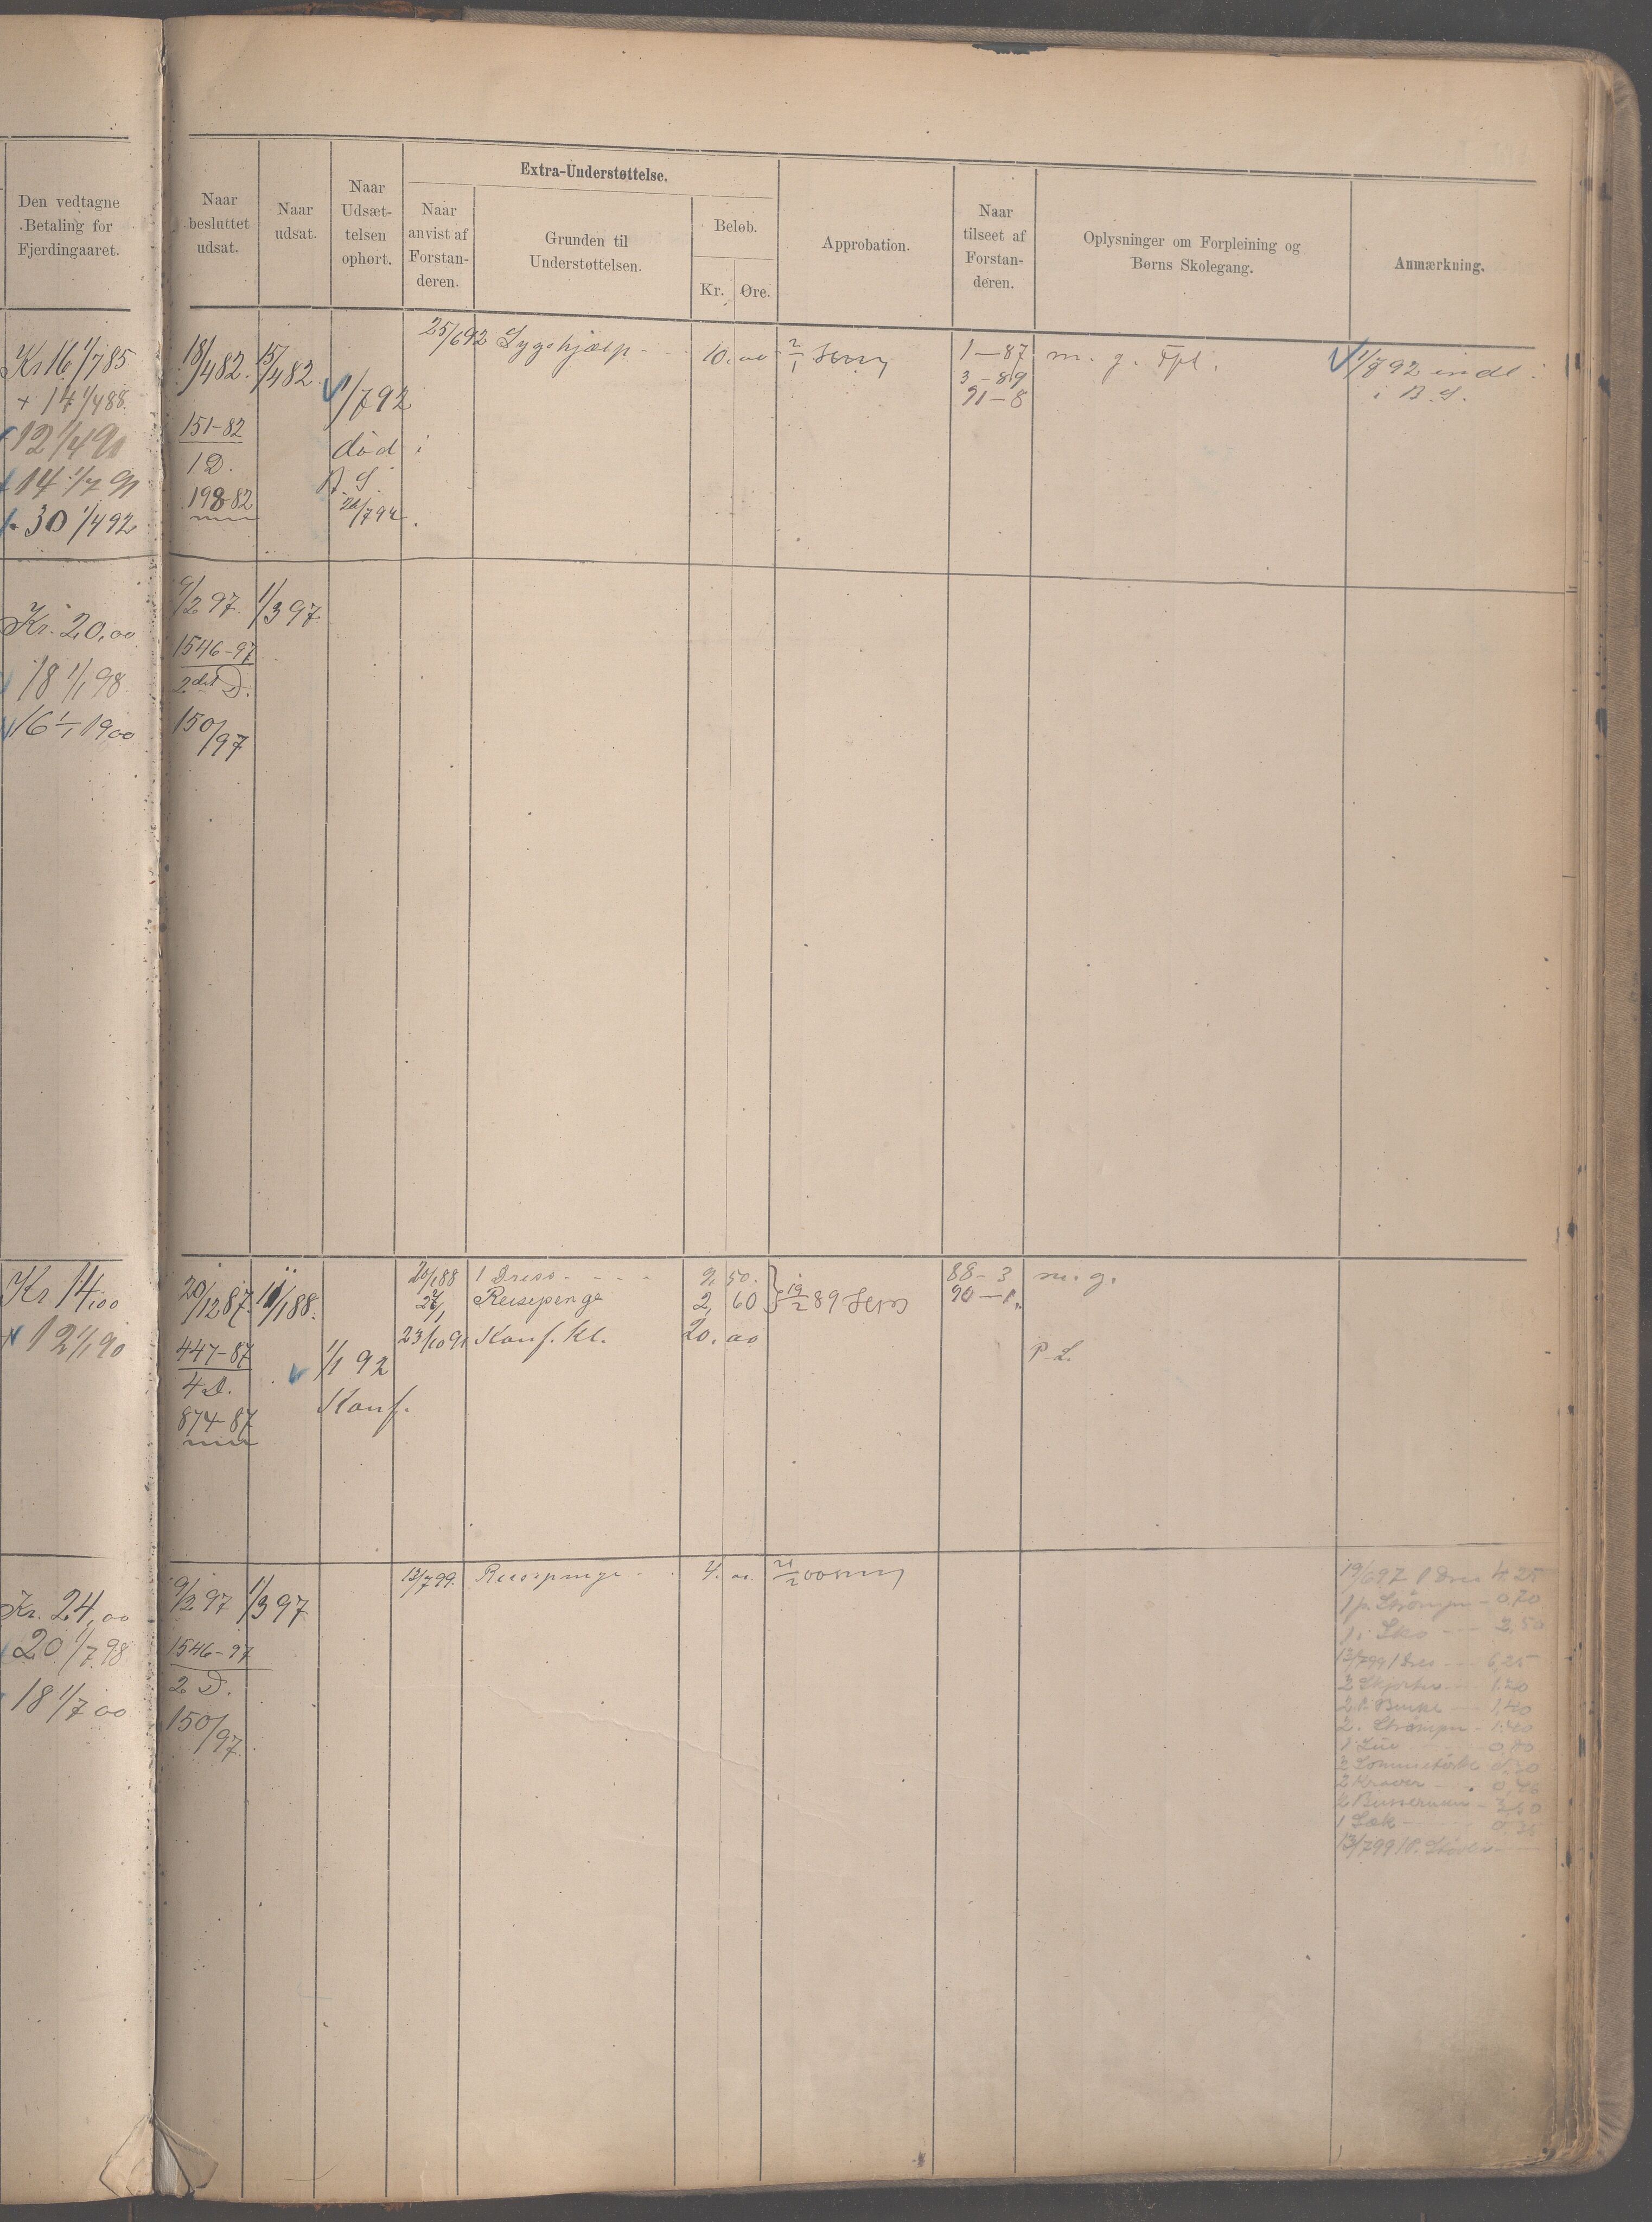 Den vedtagne
Betaling for
Fjerdingaaret.
Naar
besluttet
udsat.
Naar
udsat.
Naar
Udsæt-
telsen
ophørt.
Extra-Understøttelse.
Naar
anvist af
Forstan-
deren.
Grunden til
Understøttelsen.
Beløb.
Kr. Øre.
Approbation.
Naar
tilseet af
Forstan-
deren.
Oplysninger om Forpleining og
Børns Skolegang.
Anmærkning.
Kr 16 1/7 85
+ 14 1/4 88.
12 1/4 90
14 1/7 91
30 1/4 92
18/4 82.
151-82
1 D.
198-82
15/4 82.
1/7 92
død i
A. S.
25/6 92 Sygehjælp - 10. 00
1-87
3-89
91-8
m. g. Fpl.
1/7 92 indl.
i A. S.
Kr. 20,00
18 1/1 98
16 1/1 1900
9/2 97.
1546-97
2det D.
150/97
1/3 97
Kr 14,00
12 1/1 90
20/12 87.
447-87
4 D.
874-87
11/1 88.
1/1 92
Konf.
20/1 88 1 Dress - - - 9, 50.
Reisepenge 2, 60
23/10 91 Konf. kl. 20. 00
19/2 89
88-3
90-1
m. g.
P. L.
Kr. 24,00
20 1/7 98
18 1/7 00
9/2 97
1546-97
2 D.
150/97.
1/3 97
13/7 99. Reisepenge - 4. 00
19/6 97 1 Dres 4.25
1 p. Strømper - 0,70
1 " Sko - 3,50
13/7 99 1 Dres - 6,25
2 Skjorter - 1.20
2 P. Benkl. - 1,40
2 . Strømper - 1.40
1 Lue
2 Lommetørkl
2 Kraver
2 Busseruner
1 Sæk
13/7 99 1 P. Støvler